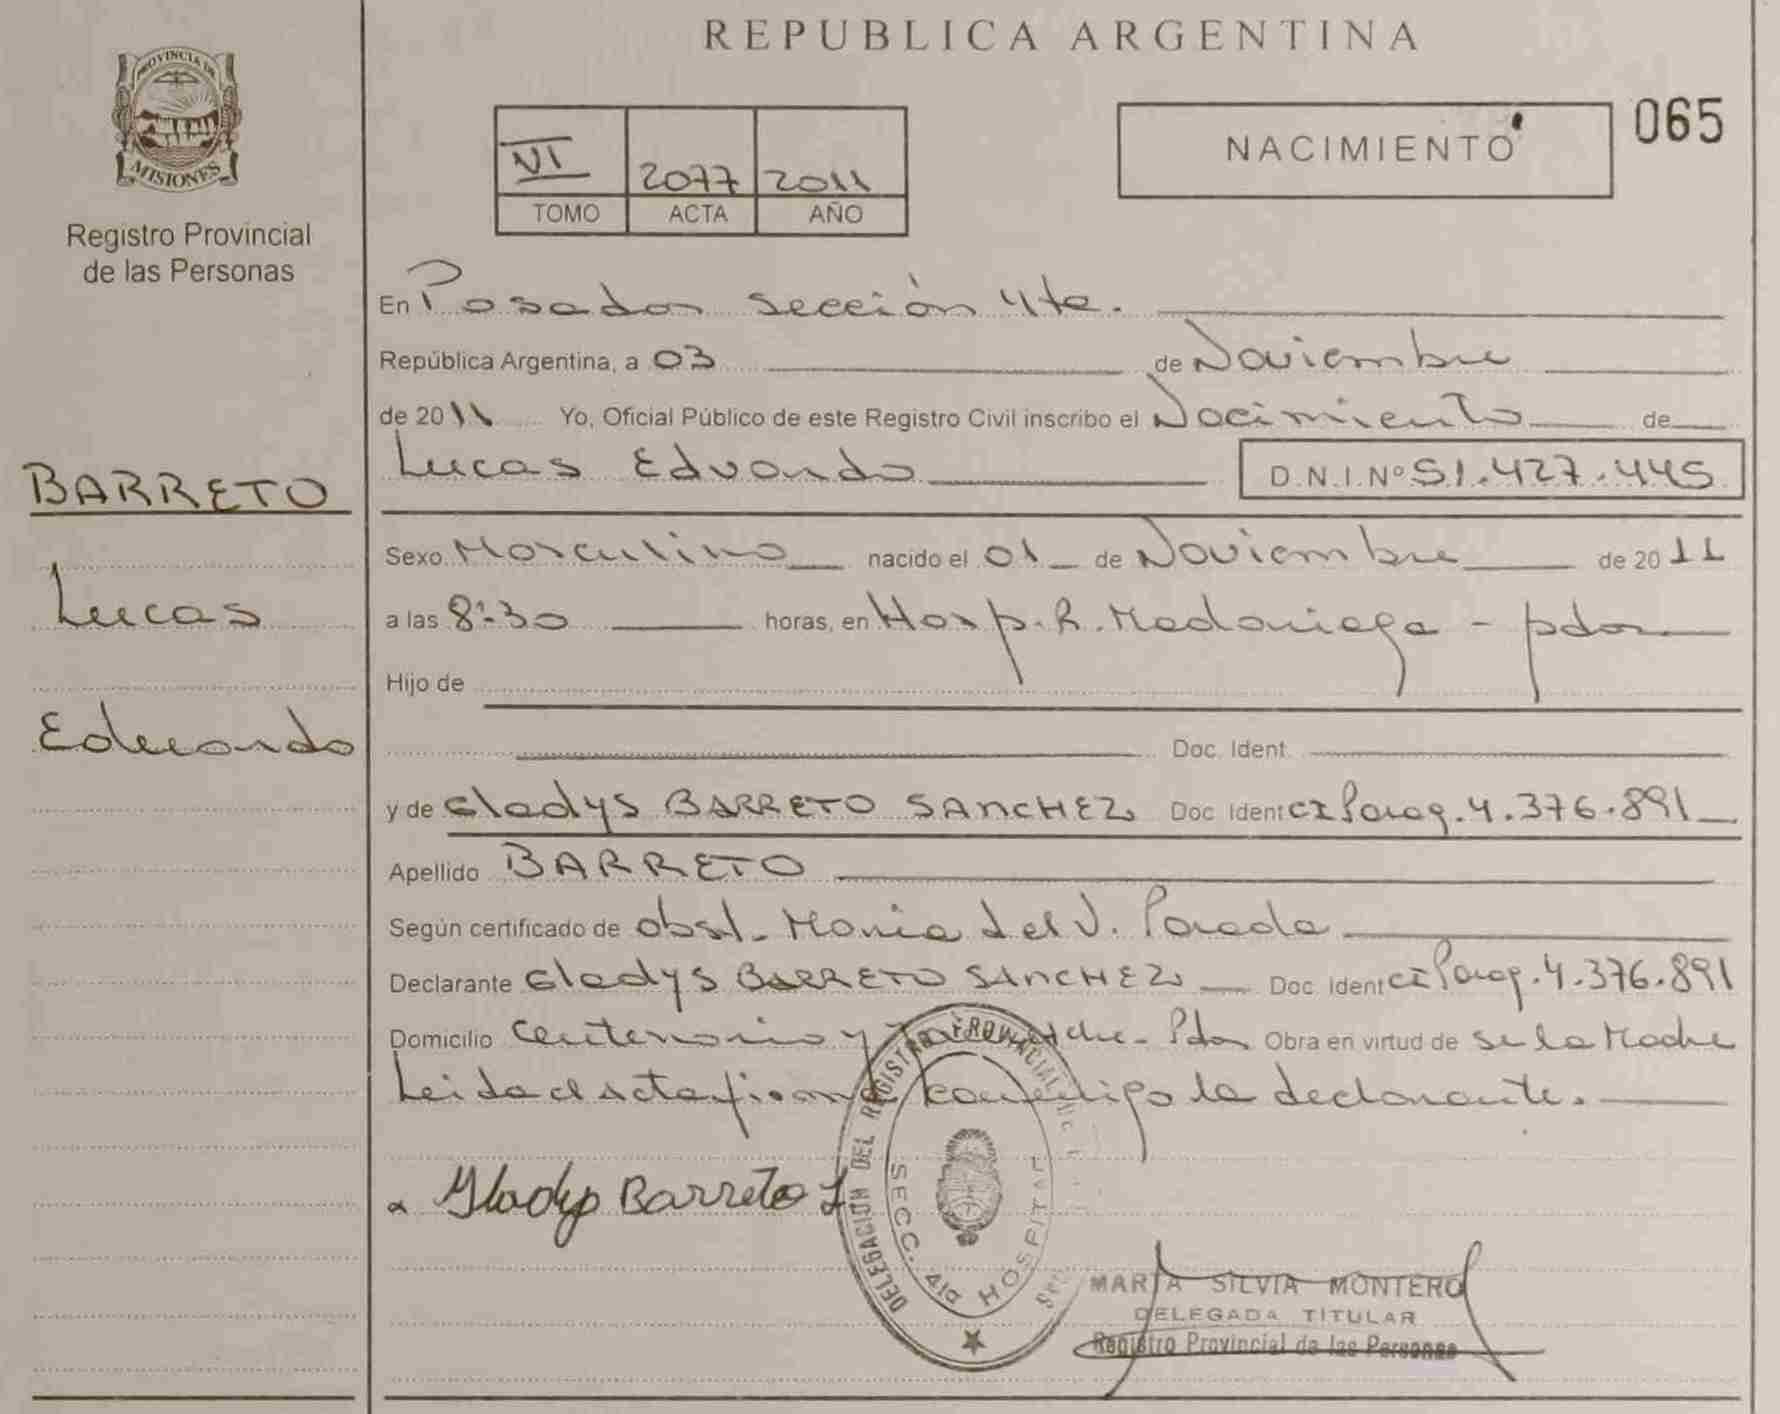 REPUBLICA ARGENTINA
PROVINCIA DE
MISIONES
Registro Provincial
de las Personas
VI 2077 2011
TOMO ACTA AÑO
NACIMIENTO
065
BARRETO
Lucas
Eduardo
En Posadas sección 4ta.
República Argentina, a 03 de Noviembre
de 2011 Yo, Oficial Público de este Registro Civil inscribo el Nacimiento de
Lucas Eduardo D.N.I. Nº 51.427.445
Sexo Masculino nacido el 01 de Noviembre de 2011
a las 8:30 horas, en Hosp. R. Madariaga - pdas
Hijo de
Doc. Ident.
y de Gladys BARRETO SANCHEZ Doc Ident CI Parag. 4.376.891
Apellido BARRETO
Según certificado de obst. Maria del V. Parada
Declarante Gladys BARRETO SANCHEZ Doc Ident CI Parag. 4.376.891
Domicilio Centenario y Pdas Obra en virtud de se la Madre
Leida el acta firma conmigo la declarante.
Gladys Barreto S
DELEGACION DEL REGISTRO PROVINCIAL
SECC. 4ta HOSPITAL
MARIA SILVIA MONTERO
DELEGADA TITULAR
Registro Provincial de las Personas